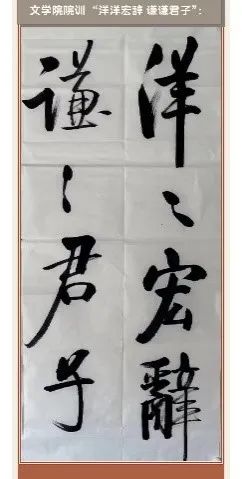 文学院院训“洋洋宏辞 谦谦君子”：
洋〻宏辭
謙〻君子